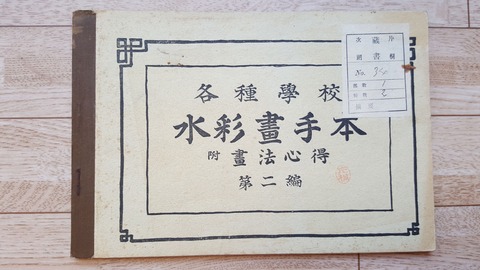 各種學校
水彩畫手本
附 畫法心得
第二編
藏書
No.